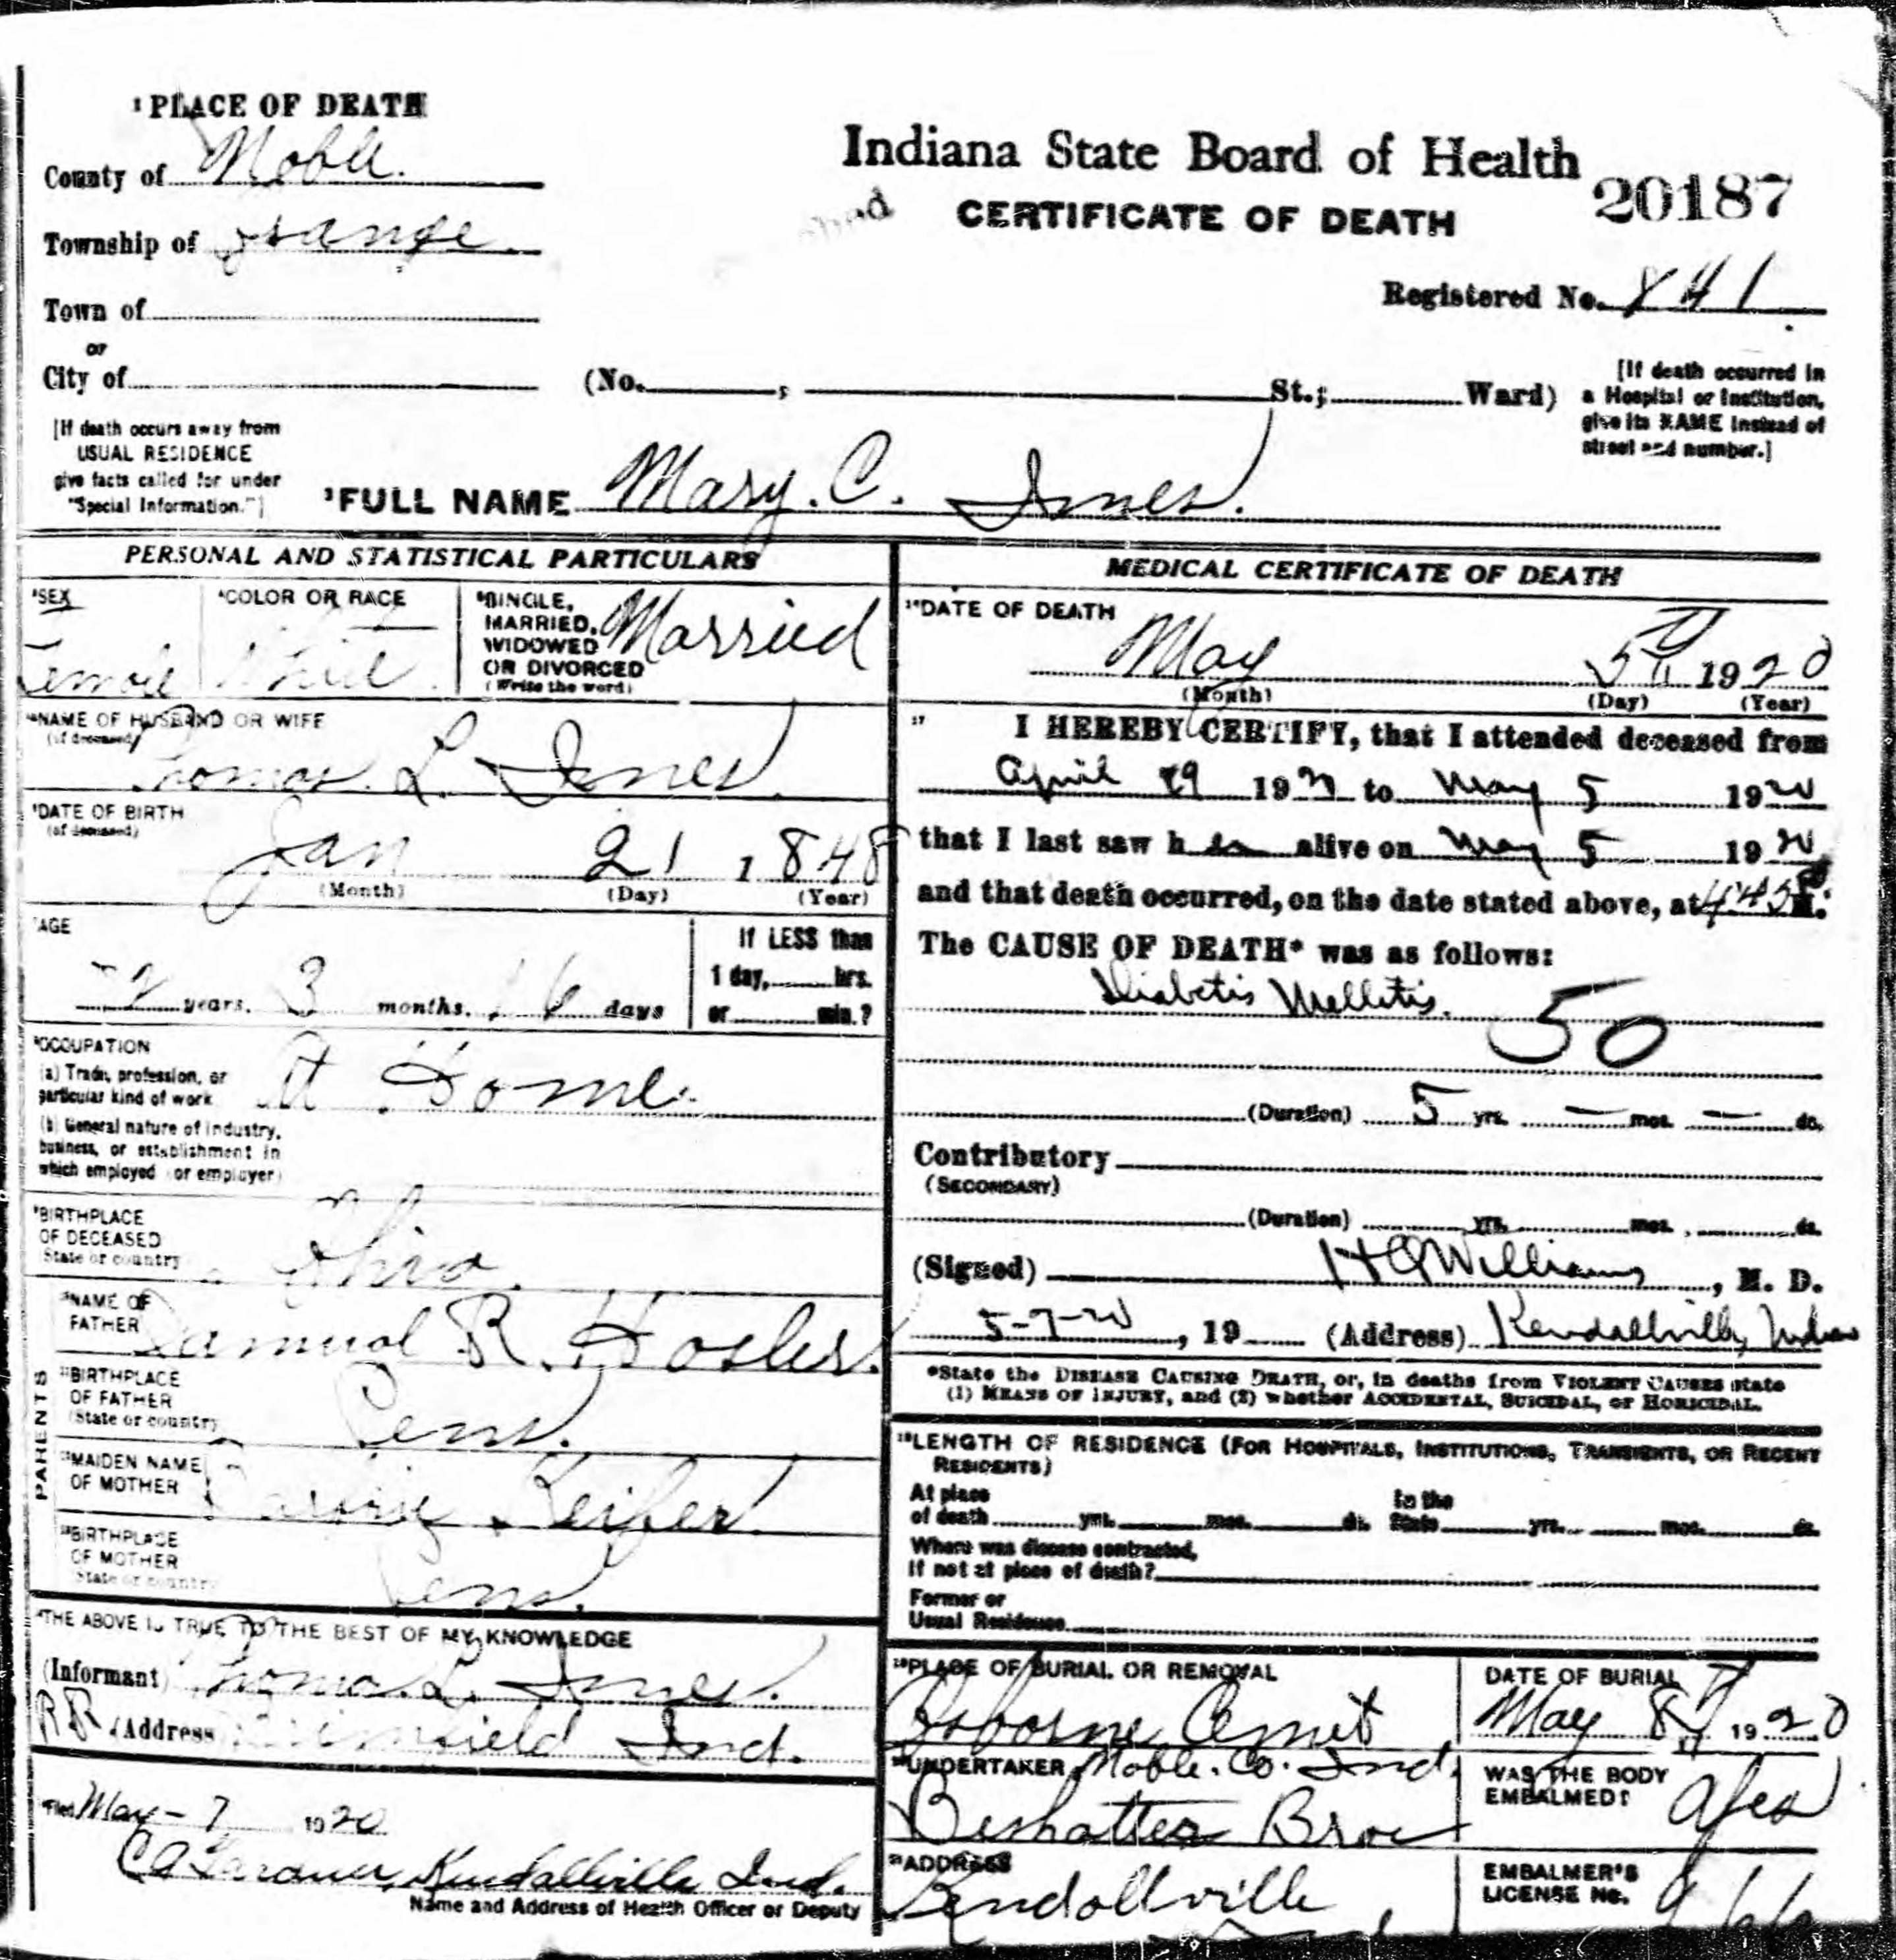 ¹PLACE OF DEATH
County of Noble.
Township of Orange.
Town of
or
City of
[If death occurs away from
USUAL RESIDENCE
give facts called for under
"Special Information."]
Indiana State Board of Health
20187
CERTIFICATE OF DEATH
Registered No. 841
(No. , St.; Ward)
[If death occurred in
a Hospital or Institution,
give its NAME instead of
street and number.]
FULL NAME Mary. C. Imes.
PERSONAL AND STATISTICAL PARTICULARS
SEX
Female
COLOR OR RACE
White
SINGLE,
MARRIED,
WIDOWED
OR DIVORCED
(Write the word)
Married
NAME OF HUSBAND OR WIFE
(if deceased)
Thomas. L. Imes.
DATE OF BIRTH
(of deceased)
Jan 21 1848
(Month) (Day) (Year)
AGE
2 years. 3 months. 16 days
If LESS than
1 day, hrs.
or min.?
OCCUPATION
(a) Trade, profession, or
particular kind of work
At Home.
(b) General nature of industry,
business, or establishment in
which employed (or employer)
BIRTHPLACE
OF DECEASED
State or country
Ohio.
PARENTS
NAME OF
FATHER
Samuel R. Hosler.
BIRTHPLACE
OF FATHER
(State or country
Penn.
MAIDEN NAME
OF MOTHER
Keifer
BIRTHPLACE
OF MOTHER
State or country
Penn.
THE ABOVE IS TRUE TO THE BEST OF MY KNOWLEDGE
(Informant) Thomas L. Imes.
RR (Address Brimfield Ind.
Filed May - 7 1920
CA Gardner, Kendallville Ind.
Name and Address of Health Officer or Deputy
MEDICAL CERTIFICATE OF DEATH
DATE OF DEATH
May 5th 1920
(Month) (Day) (Year)
17 I HEREBY CERTIFY, that I attended deceased from
April 19 1920 to May 5 1920
that I last saw her alive on May 5 1920
and that death occurred, on the date stated above, at 4:45 P M.
The CAUSE OF DEATH* was as follows:
Diabetis Mellitis.
50
(Duration) 5 yrs. — mos. — ds.
Contributory
(SECONDARY)
(Duration) yrs. mos. ds.
(Signed) Williams, M. D.
5-7-20, 19 (Address) Kendallville, Indiana
*State the DISEASE CAUSING DEATH, or, in deaths from VIOLENT CAUSES state
(1) MEANS OF INJURY, and (2) whether ACCIDENTAL, SUICIDAL, or HOMICIDAL.
18 LENGTH OF RESIDENCE (FOR HOSPITALS, INSTITUTIONS, TRANSIENTS, OR RECENT
RESIDENTS)
At place
of death yrs. mos. ds.
In the
State yrs. mos. ds.
Where was disease contracted,
If not at place of death?
Former or
Usual Residence
19 PLACE OF BURIAL OR REMOVAL
Osborne Cemet
Noble. Co. Ind.
DATE OF BURIAL
May 8th 1920
UNDERTAKER
Bros
WAS THE BODY
EMBALMED?
Yes
ADDRESS
Kendallville
EMBALMER'S
LICENSE No.
966